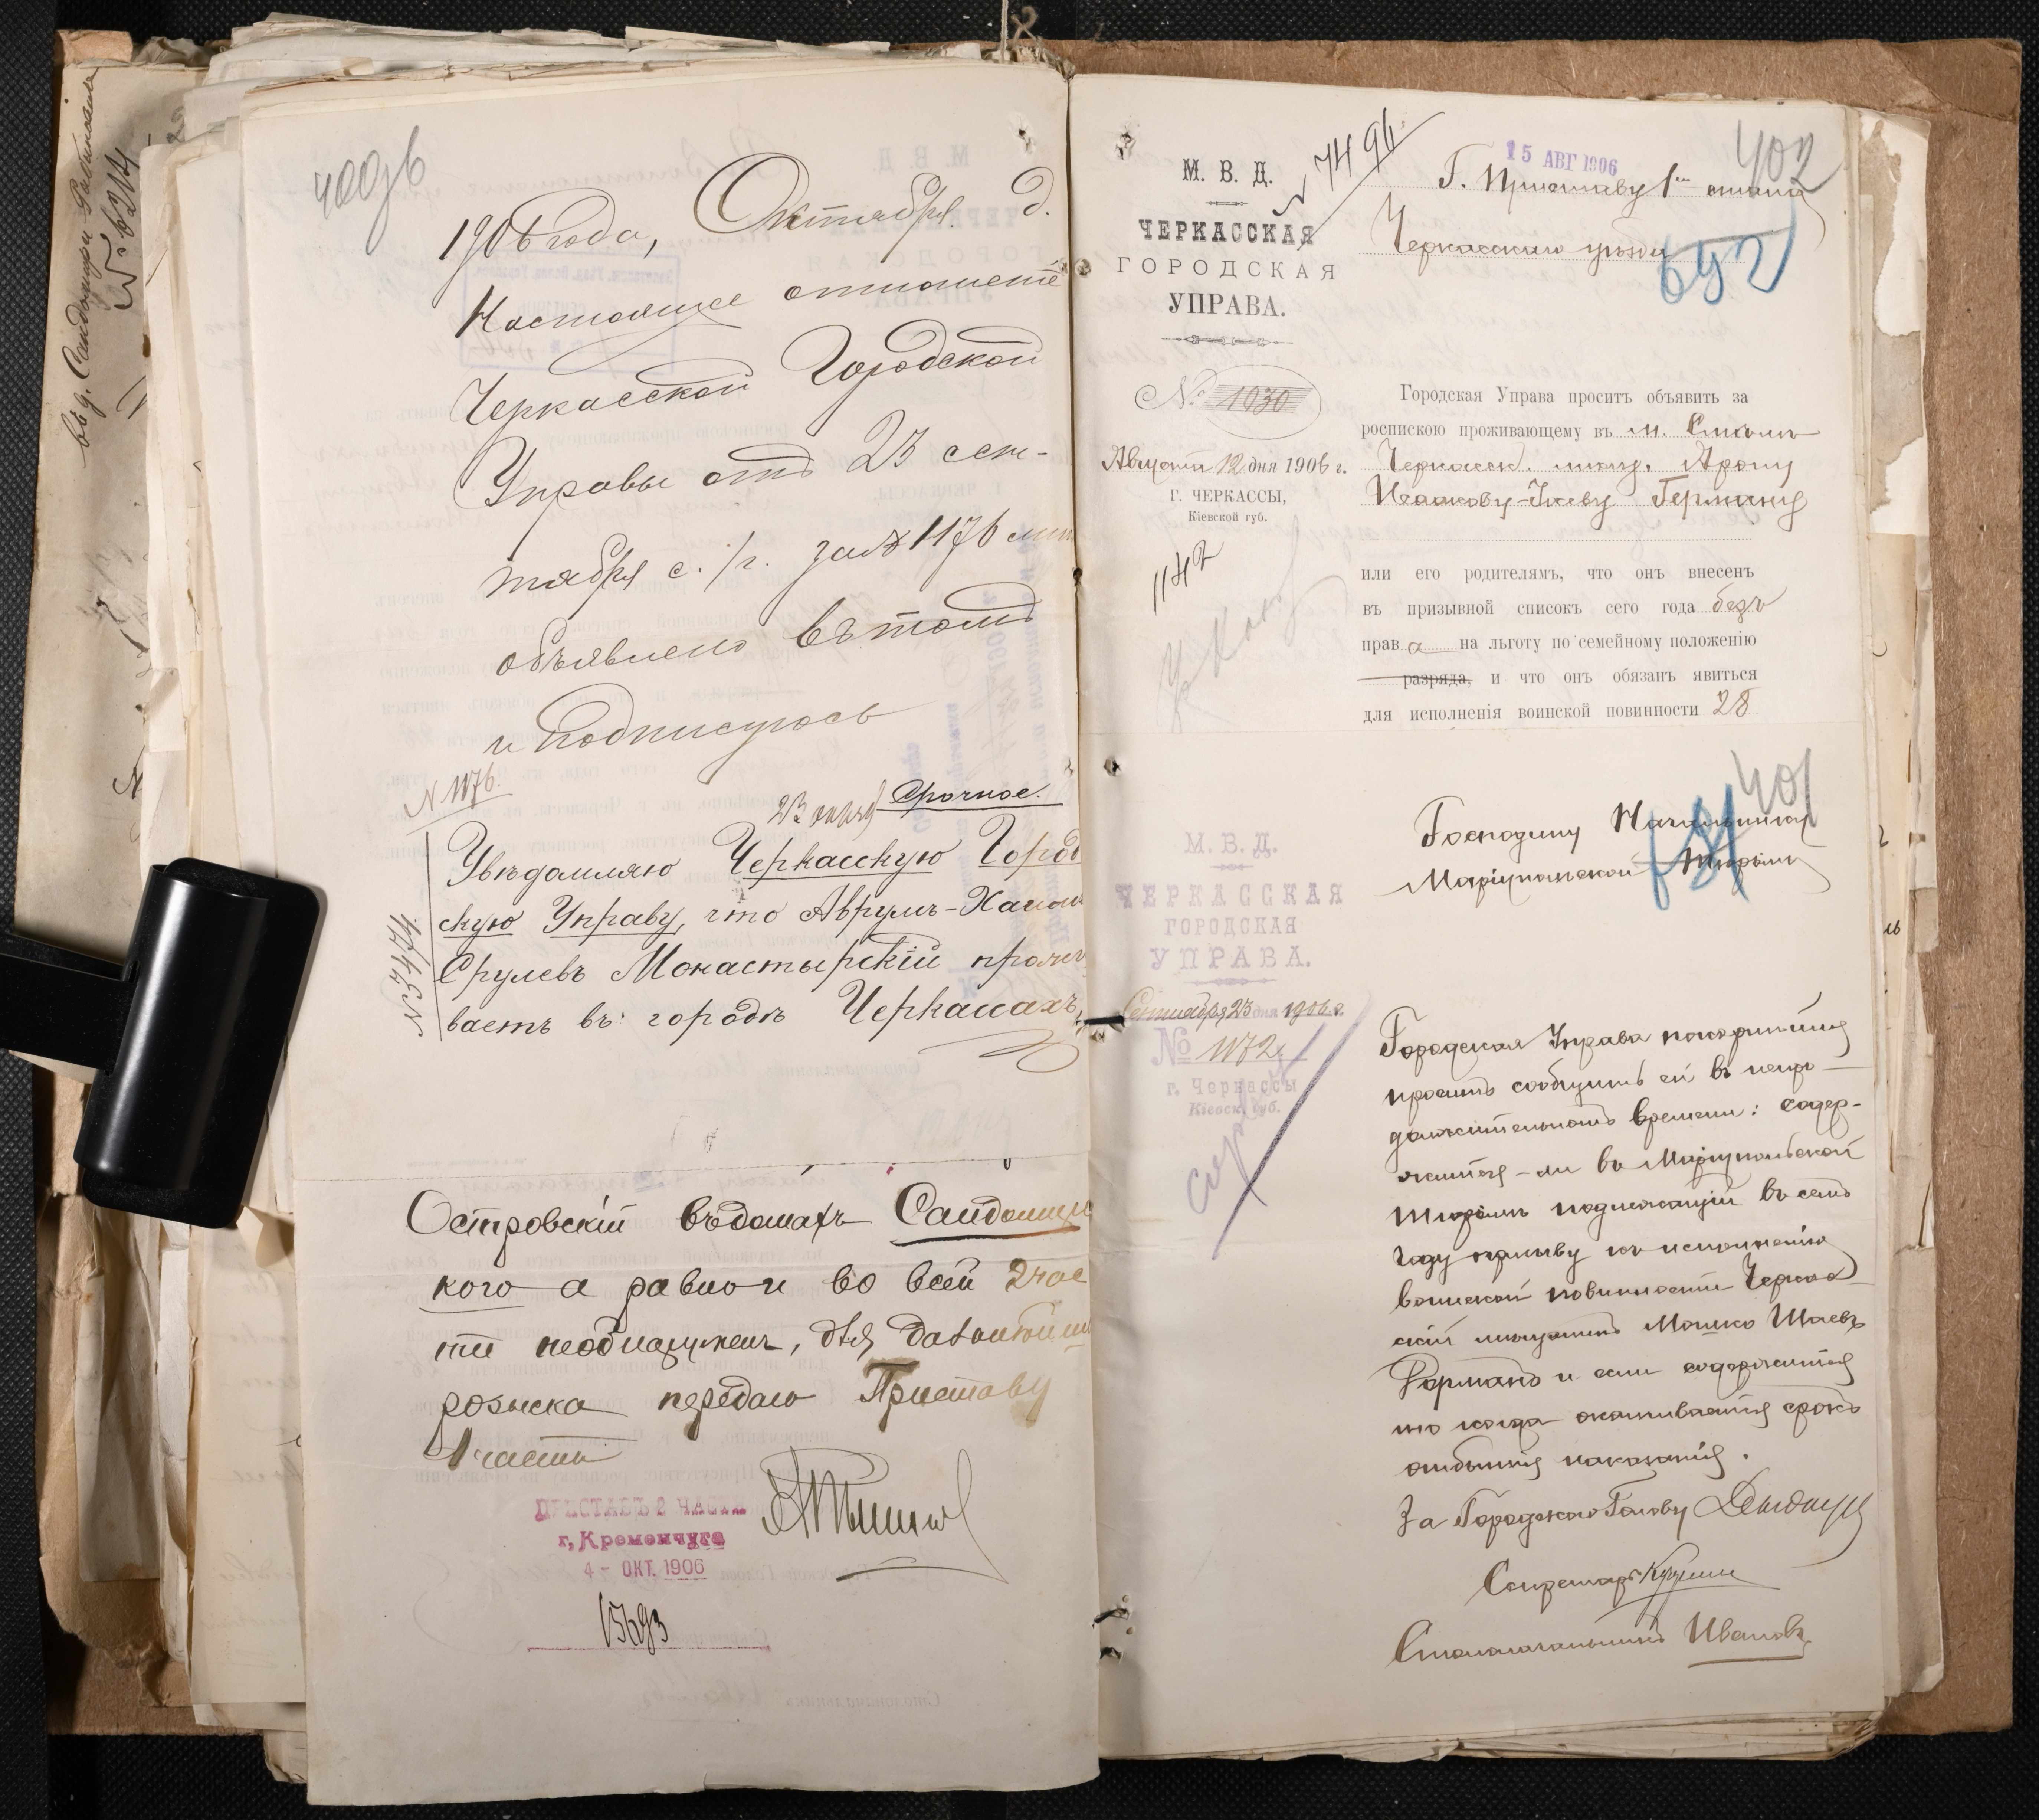 въ д. Сандомири Рабиновича
400об
1906 года, Октября д.
Настоящее отношеніе
Черкасской Городской
Управы отъ 23 сен-
тября с./г. за № 1176 мнѣ
объявлено въ томъ
и подписуюсь
N 1176.
Срочное.
Увѣдомляю Черкасскую Город
скую Управу, что Аврумъ-Хаимъ
Срулевъ Монастырскій прожи
ваетъ въ городѣ Черкассахъ,
N 3474.
Островскій въ домахъ Сандомир
кого а равно и во всей 2 час
ти необнаруженъ, для дальнѣйш
розыска передаю Приставу
1 части
ПРИСТАВЪ 2 ЧАСТИ
г. Кременчуга
4 - ОКТ. 1906
15693
М. В. Д.
ЧЕРКАССКАЯ
ГОРОДСКАЯ
УПРАВА.
N 7496
15 АВГ 1906
402
Г. Приставу 1го стана
Черкасскаго уѣзда
692
№ 1030
Августа 12 дня 1906 г.
Г. ЧЕРКАССЫ,
Кіевской губ.
1142
Городская Управа проситъ объявить за
роспискою проживающему въ м. Смѣлѣ
Черкасск. мѣщ. Арону
Ицкову-Іосеву Герману
или его родителямъ, что онъ внесенъ
въ призывной списокъ сего года безъ
прав а на льготу по семейному положенію
разряда, и что онъ обязанъ явиться
для исполненія воинской повинности 28
401
Господину Начальнику
Маріупольской Тюрьмы
М. В. Д.
ЧЕРКАССКАЯ
ГОРОДСКАЯ
УПРАВА.
Сентября 23 дня 1906 г.
№ 1172
г. Черкассы
Кіевск. губ.
Городская Управа покорнѣйше
проситъ сообщить ей въ непро-
должительномъ времени: содер-
жится-ли въ Маріупольской
тюрьмѣ подлежащій въ семъ
году призыву къ исполненію
воинской повинности Черкас-
скій мѣщанинъ Мошко Шаевъ
Форманъ и если содержится
то когда оканчивается срокъ
отбытія наказанія.
За Городского Голову
Секретарь
Столоначальникъ Ивановъ